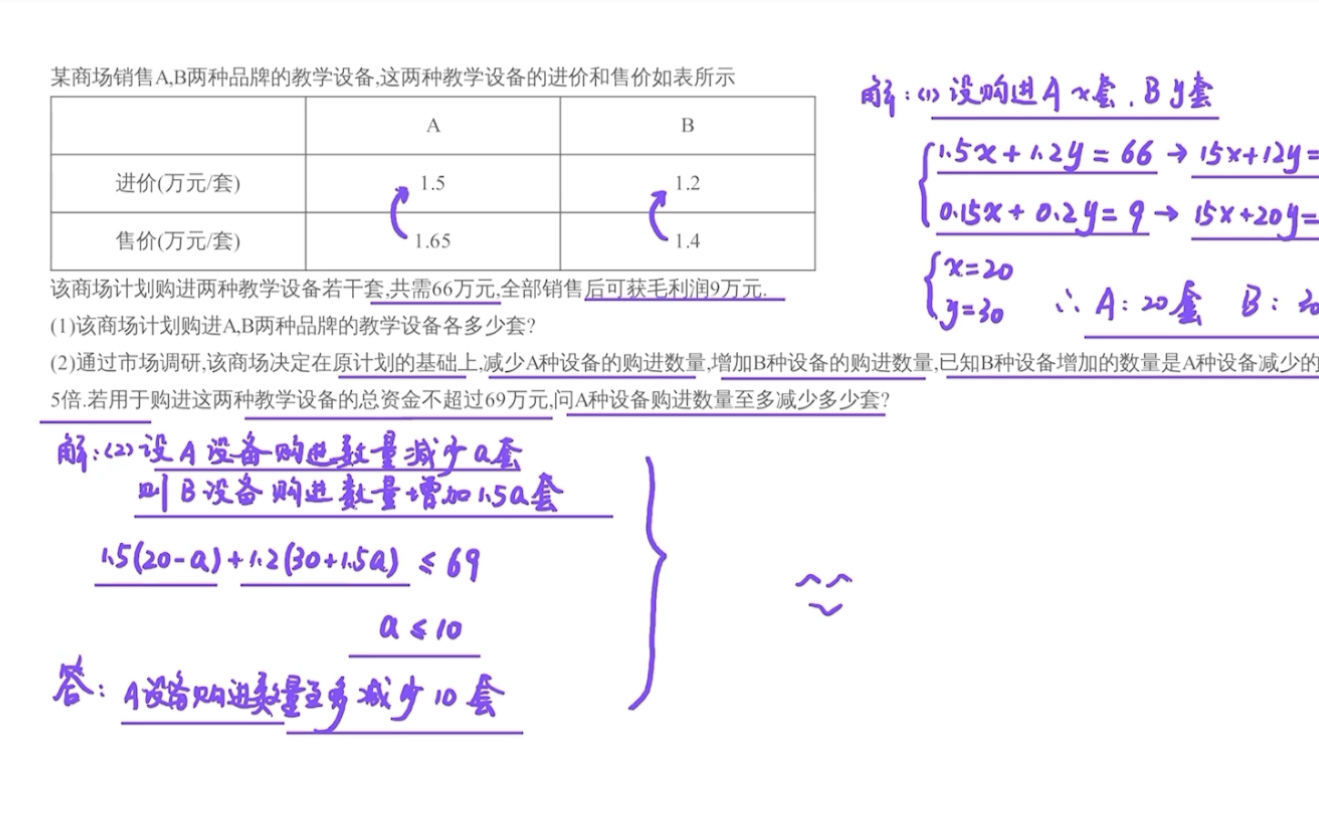 某商场销售A,B两种品牌的教学设备,这两种教学设备的进价和售价如表所示
A B
进价(万元/套) 1.5 1.2
售价(万元/套) 1.65 1.4
该商场计划购进两种教学设备若干套,共需66万元,全部销售后可获毛利润9万元.
(1)该商场计划购进A,B两种品牌的教学设备各多少套?
(2)通过市场调研,该商场决定在原计划的基础上,减少A种设备的购进数量,增加B种设备的购进数量,已知B种设备增加的数量是A种设备减少的
5倍.若用于购进这两种教学设备的总资金不超过69万元,问A种设备购进数量至多减少多少套?
解:(1)设购进A x套、B y套
1.5x+1.2y=66→15x+12y=
0.15x+0.2y=9→15x+20y=
x=20
y=30 ∴A:20套 B:30
解:(2)设A设备购进数量减少a套
则B设备购进数量增加1.5a套
1.5(20-a)+1.2(30+1.5a)≤69
a≤10
答:A设备购进数量至多减少10套